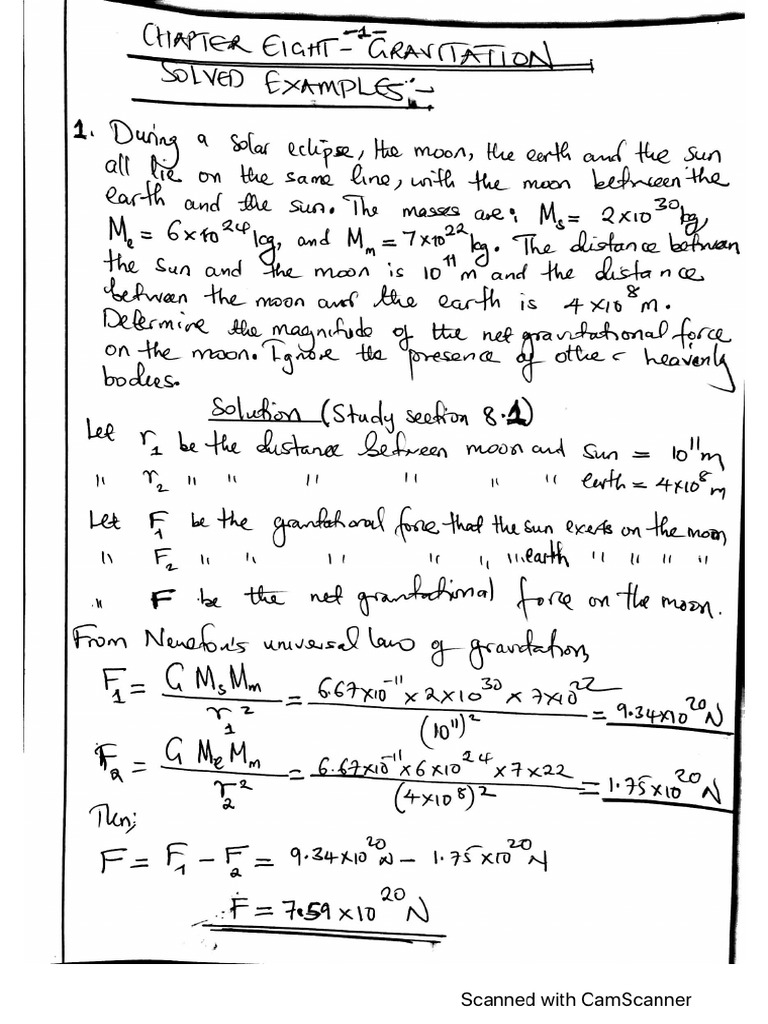 -1-
CHAPTER EIGHT - GRAVITATION
SOLVED EXAMPLES:-
1. During a solar eclipse, the moon, the earth and the sun
all lie on the same line, with the moon between the
earth and the sun. The masses are: Mₛ = 2×10³⁰ kg,
Mₑ = 6×10²⁴ kg, and Mₘ = 7×10²² kg. The distance between
the sun and the moon is 10¹¹ m and the distance
between the moon and the earth is 4×10⁸ m.
Determine the magnitude of the net gravitational force
on the moon. Ignore the presence of other heavenly
bodies.
Solution (Study section 8.1)
Let r₁ be the distance between moon and sun = 10¹¹ m
" r₂ " " " " " " earth = 4×10⁸ m
Let F₁ be the gravitational force that the sun exerts on the moon
" F₂ " " " " " " earth " " " "
" F be the net gravitational force on the moon.
From Newton's universal law of gravitation,
F₁ = G Mₛ Mₘ / r₁² = 6.67×10⁻¹¹ × 2×10³⁰ × 7×10²² / (10¹¹)² = 9.34×10²⁰ N
F₂ = G Mₑ Mₘ / r₂² = 6.67×10⁻¹¹ × 6×10²⁴ × 7×22 / (4×10⁸)² = 1.75×10²⁰ N
Then;
F = F₁ - F₂ = 9.34×10²⁰ N - 1.75×10²⁰ N
∴ F = 7.59×10²⁰ N
Scanned with CamScanner